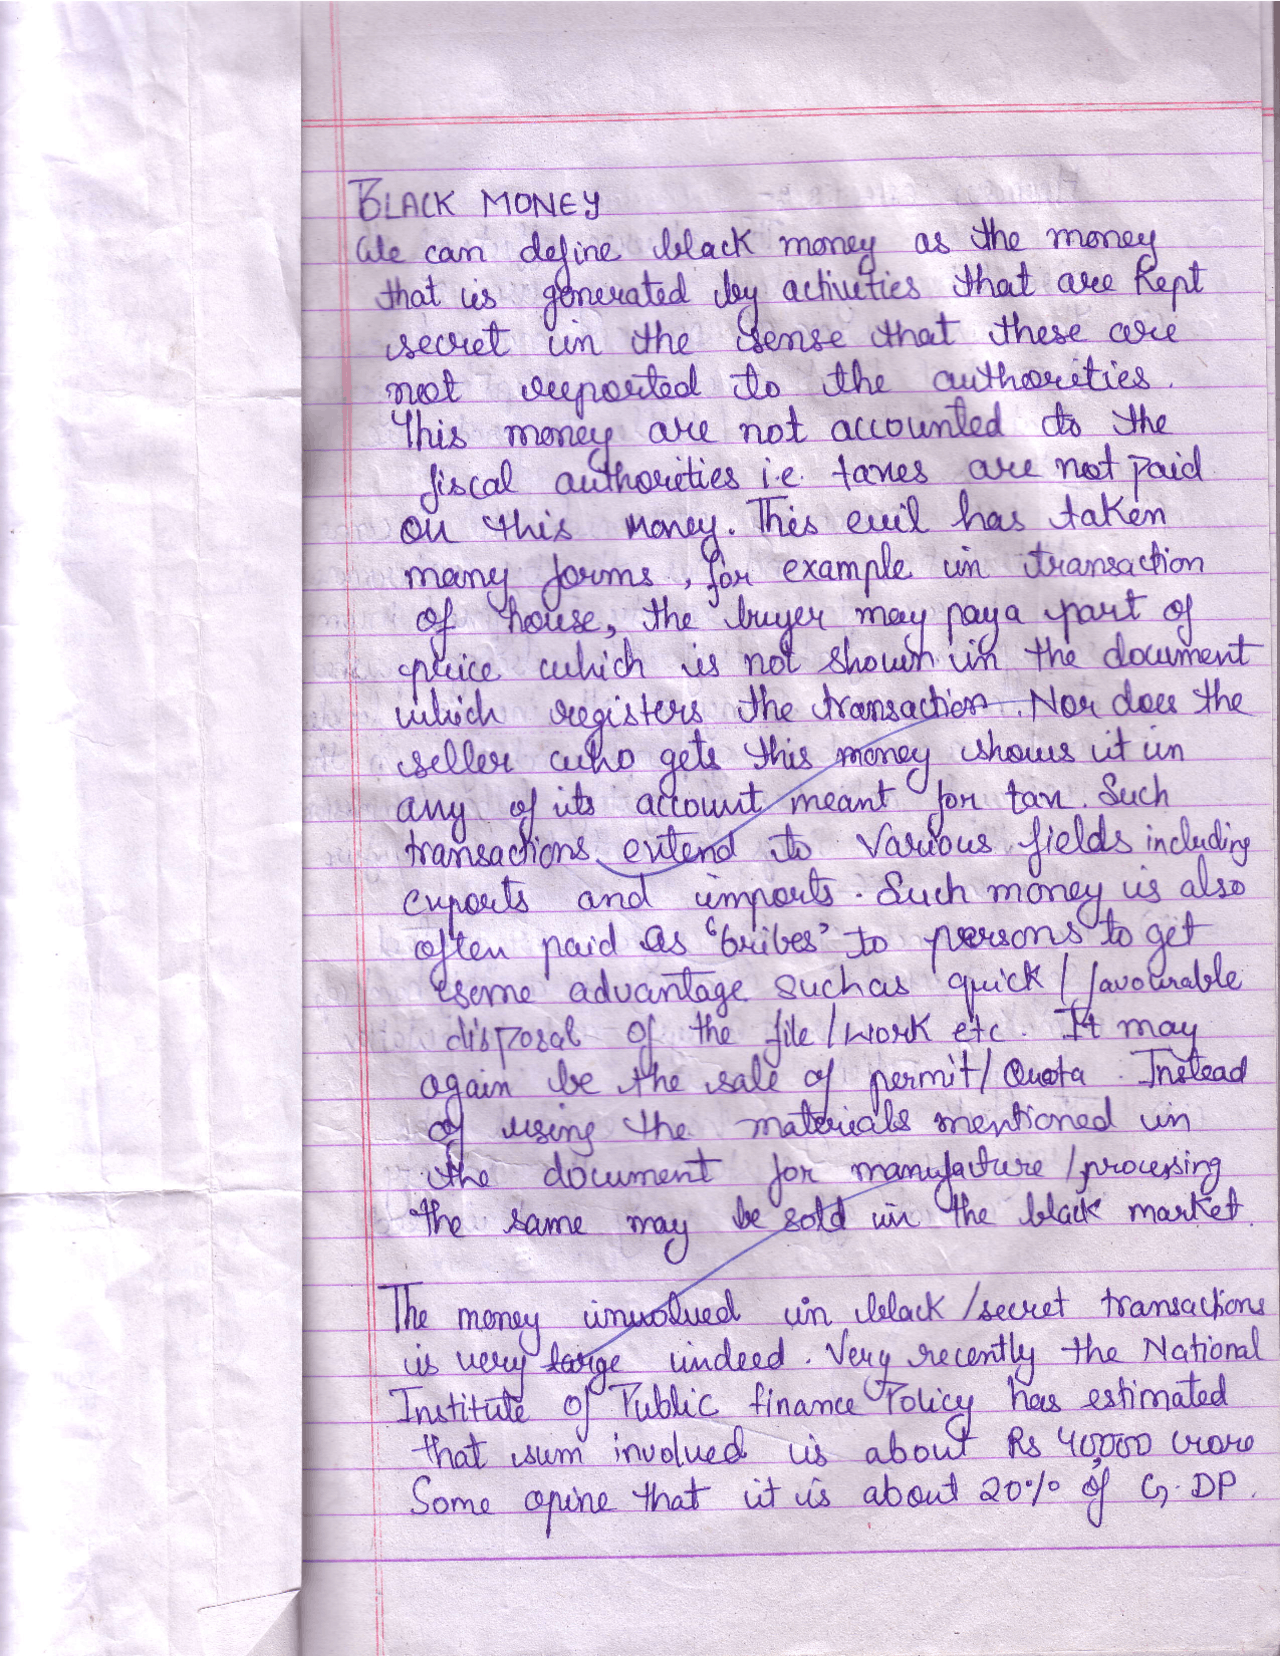 BLACK MONEY
We can define black money as the money
that is generated by activities that are kept
secret in the sense that these are
not reported to the authorities.
This money are not accounted to the
fiscal authorities i.e. taxes are not paid
on this money. This evil has taken
many forms, for example in transaction
of house, the buyer may pay a part of
price which is not shown in the document
which registers the transaction. Nor does the
seller who gets this money shows it in
any of its account meant for tax. Such
transactions extend to various fields including
exports and imports. Such money is also
often paid as "bribes" to persons to get
some advantage such as quick / favourable
disposal of the file / work etc. It may
again be the sale of permit / Quota. Instead
of using the materials mentioned in
the document for manufacture / processing
the same may be sold in the black market.
The money involved in black / secret transactions
is very large indeed. Very recently the National
Institute of Public finance Policy has estimated
that sum involved is about Rs 40,000 crore
Some opine that it is about 20% of G.DP.